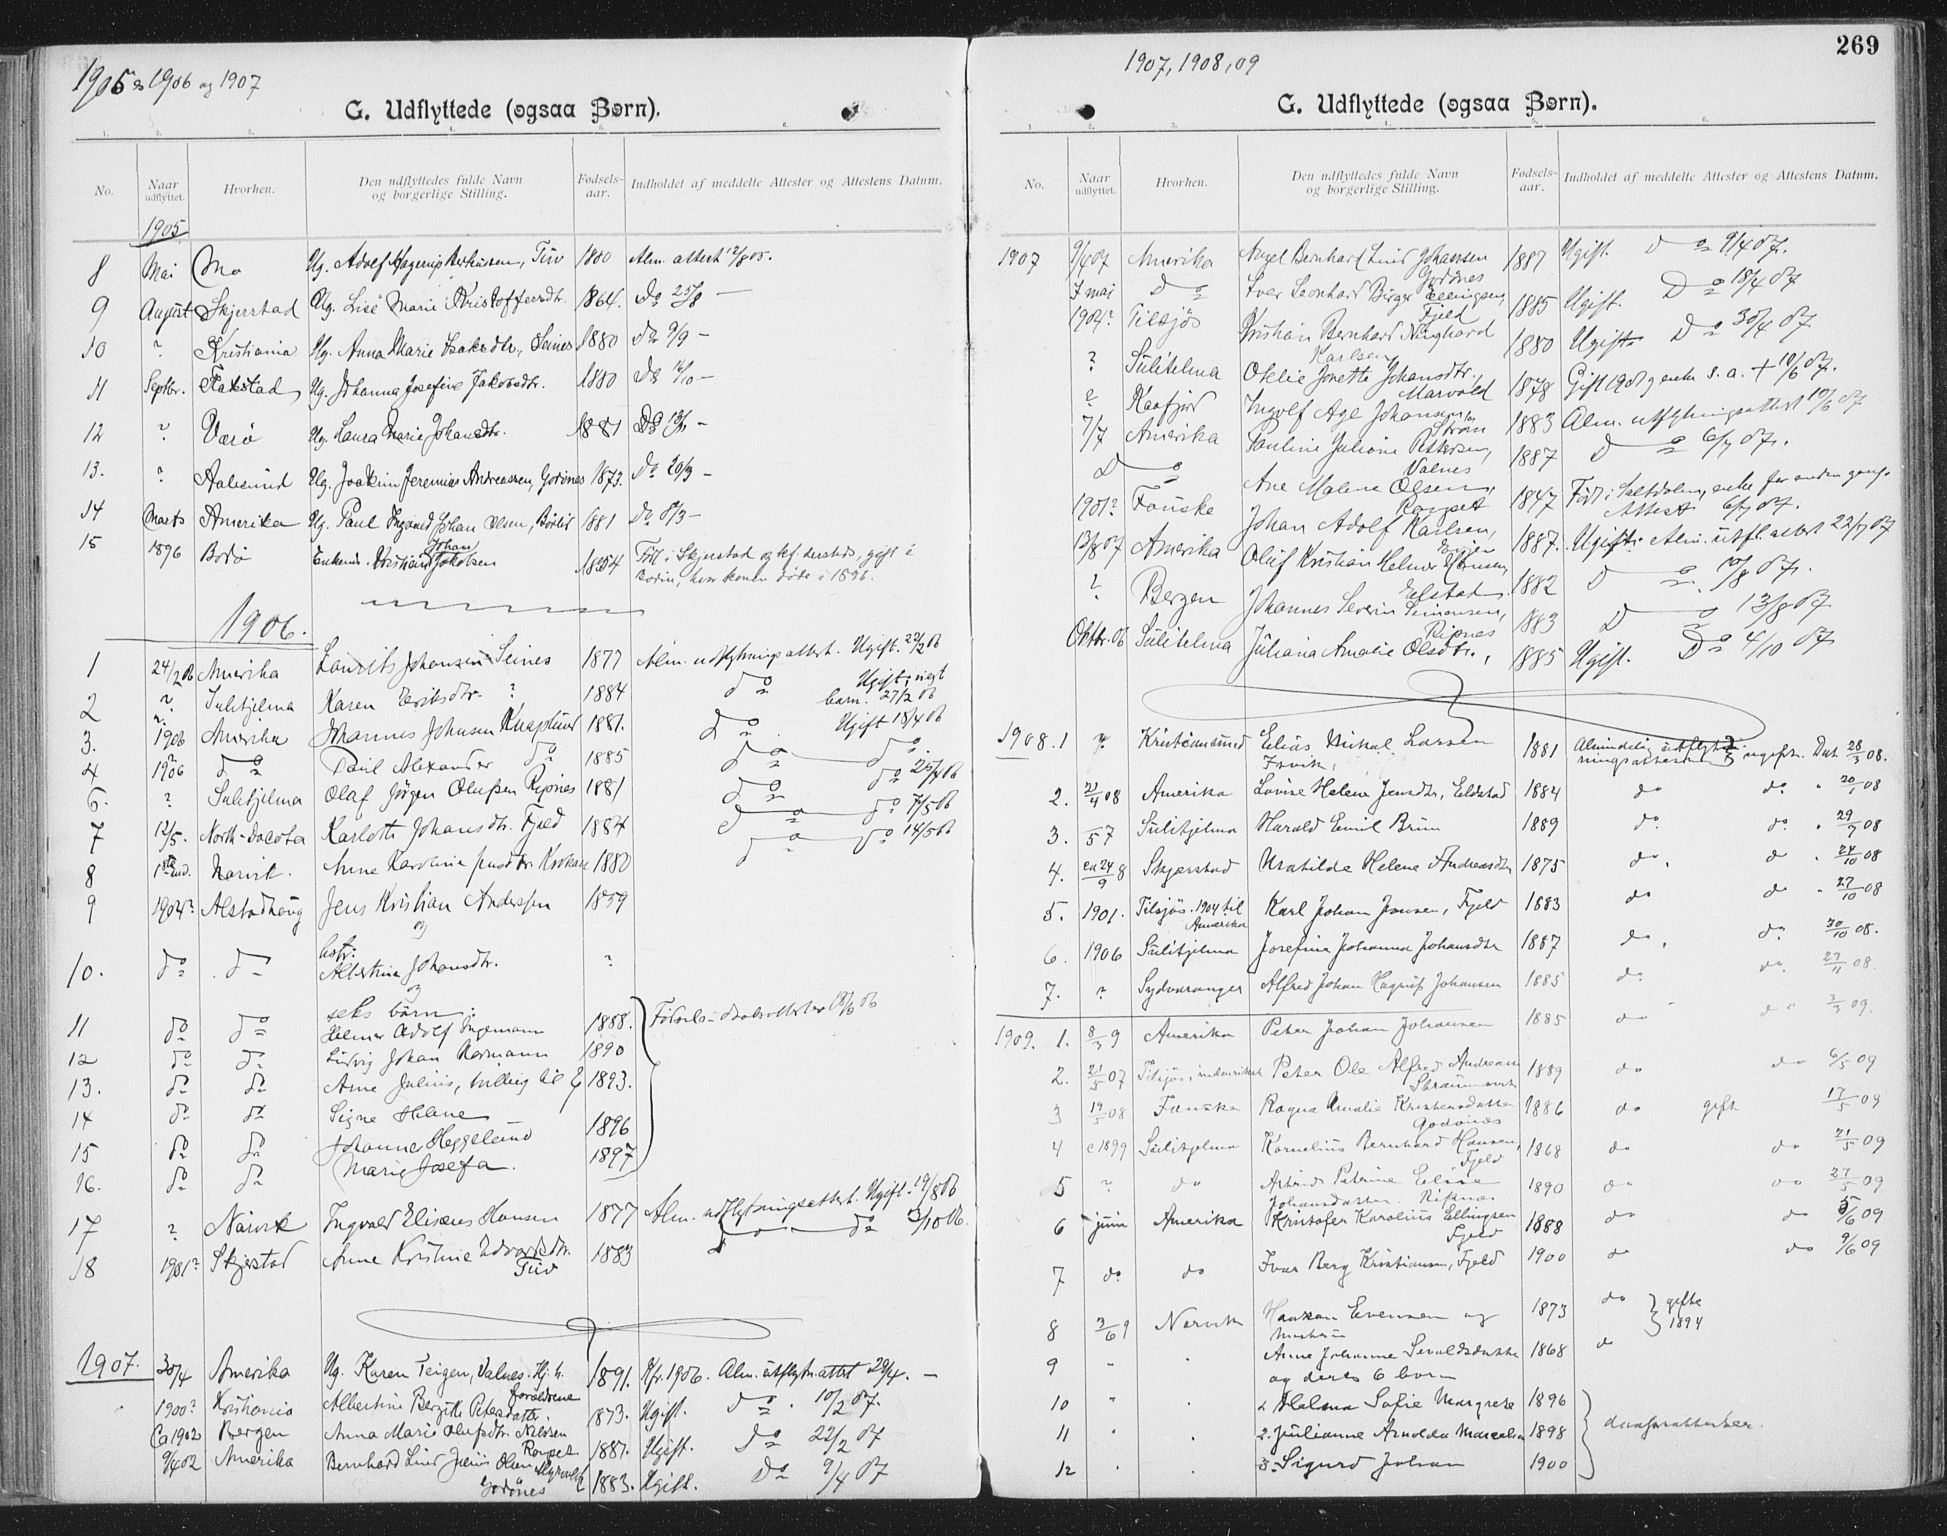 1905 & 1906 og 1907
G. Udflyttede (ogsaa Børn).
No. Naar udflyttet. Hvorhen. Den udflyttedes fulde Navn og borgerlige Stilling. Fødselsaar. Indholdet af meddelte Attester og Attestens Datum.
1905
8 Mai Mo Ug. Adolf Hagerup, Tuv 1880 Alm. attest 12/8 05.
9 August Skjerstad Ug. Lise Marie Kristoffersdtr. 1864. Do 25/8 —
10 ? Kristiania Ug. Anna Marie Isaksdtr, Seines 1880 Do 9/9 —
11 Septbr. Ug. Johanna Josefine Jakobsdtr. 1880 Do 16/10 —
12 ? Værö Ug. Laura Marie Johansdtr. 1881 Do —
13. ? Aalesund Ug. Joakim Jeremias Andreassen, Godönes 1873. Do 20/3 —
14 Marts Amerika Ug. Paul Ingvard Johan Olsen, 1881 Do 8/3 —
15 1896 Bodö Enkem. Kristian Johan Jakobsen 1854 Födt i Skjerstad og kf. dersteds, gift i
Bodin, hvis kone döde i 1896.
1906.
1 24/2 06 Amerika Laurits Johansen Seines 1877 Alm. udflytningsattest. Ugift. 22/2 06
2 ? Sulitjelma Karen Eriksdtr. ? 1884 do Ugift, barn. 27/2 06
3. ? 1906 Amerika Johannes Johnsen Knaplund 1881. do Ugift 18/4 06
4 ? 1906 do Paul Alexander do 1885 do do
6. ? Sulitjelma Olaf Jörgen Olufsen Ripnes 1881 do do 25/4 06
7 12/5. North-Dacota Karlotte Johansdtr. Fjeld 1884 do do 7/5 06
8 Narvik. Anne Karoline 1880 do do 14/5 06
9 1904? Alstadhoug Jens Kristian Anderssen 1859
og
10. do do hstr: Albertine Johansdtr. ?
og
seks börn:
11 do do Helmer Adolf Ingemann 1888. Födsels- & daabsattester 06
12 do do Ludvig Johan Normann 1890
13. do do Arne Julius, tvilling til 1893.
14 do do Signe Helene
15 do do Johanne Heggelund 1896
16. do do Marie Josefa. 1897
17 ? Narvik Ingvald Elisæus Hansen 1877 Alm. udflytningsattest. Ugift. 19/8 06
18 1901? Skjerstad Anne Kristine Edvardsdtr. Tuv 1883 do do 3/10 06.
1907. 30/4 Amerika Ug. Karen Teigen, Valnes. Hj. h. forældrene 1891. Kfr. 1906. Alm. utflytn. attest 29/4. —
1900? Kristiania Albertine Bergitte Petersdatter. 1873. Ugift. do. 10/2 07.
Ca 1902 Bergen Anna Marie Olufsdtr. Nilsen 1881. Ugift. do 22/2 07
9/4 02 Amerika Bernhard Lind Julius Olsen Godönes 1883. Ugift. do 9/4 07
1907, 1908, 09
269
G. Udflyttede (ogsaa Børn).
No. Naar udflyttet. Hvorhen. Den udflyttedes fulde Navn og borgerlige Stilling. Fødselsaar. Indholdet af meddelte Attester og Attestens Datum.
1907 9/4 07 Amerika Bernhard Lind Johansen Godönes 1887 Ugift. do 9/4 07.
7 mai do Iver Leonhard Birger Ellingsen, Fjeld 1885 Ugift. do 18/4 07
1904? Tilsjös Kristian Bernhard Karlsen 1880 Ugift do 30/4 07
? Sulitelma Otelie Jonette Johansdtr., Marvold 1878 Gift 1901 og enke s. a. + 10/6 07.
? Kaafjord Ingolf Age Johansen, Ström 1883 Alm. utflytningsattest 10/6 07
7/7 Amerika Pauline Juliane Pettersen, Valnes 1887 do 6/7 07.
do Ane Malene Olsen, 1847 Födt i Saltdalen, enke for anden gang. Attest 6/7 07.
1901? Fauske Johan Adolf Karlsen, 1887. Ugift. Alm. utfl. attest 22/7 07
13/8 07 Amerika Oluf Kristian Helmer Hansen, Elstad 1882 do 10/8 07.
? Bergen Johannes Severin Simonsen, Ripnes 1883 do 13/8 07
Oktbr. 06 Sulitelma Juliana Amalie Olsdtr., 1885 Ugift. do 4/10 07
1908. 1 ? Kristiansund Elias Mikal Larsen 1881 Almindelig utflytningsattest ugift. Dat 28/3 08.
2. 21/4 08 Amerika Lovise Helene Jensdtr, Eldstad 1884 do do
3. /5 7 Sulitjelma Harald Emil Brun 1889 do do 29/7 08
4. ca 24/9 8 Skjærstad Matilde Helene Andreasdtr 1875 do. do 24/10 08
5. 1901. Tilsjös. 1904 til Amerika Karl Johan Jensen, Fjeld 1883 do do 27/10 08
6. 1906 Sulitjelma Josefine Johanna Johansdtr 1887 do. do. 30/10 08.
7. ? Sydvaranger Alfred Johan Hagrup Johansen 1885 do. do. 27/11 08.
1909. 1. 8/3 9 Amerika Peter Johan Johansen 1885 do do 2/3 09.
2. 21/5 07 Tilsjös i udenriksk Peter Ole Alfred Andreassen 1889 do do 6/5 09
3 19/5 08 Fauske Ragna Amalie Kristensdatter Godönes 1886 do gift 17/5 09
4 c 1899 Sulitjelma Kornelius Bernhard Hansen, Fjeld 1868 do do 21/5 09
5 ? do Astrid Petrine Elise Johansdatter Ripnes 1890 do do 27/5 09
6 juni Amerika Kristofer Karolius Ellingsen Fjeld 1888 do do 5/6 09
7 do do Ivar Berg Kristiansen, Fjeld 1900 do do 9/6 09
8 3/6 9 Narvik Haakon Evensen og hustru 1873 do gifte 1894
9 " . Anne Johanne Sivaldsdatter 1868 do
og deres 6 born
10 " . 1. Halma Sofie Margrete 1896
11 " . 2. Julianne Arnolda Marcelie 1898 daabsattester.
12 " . 3. Sigurd Johan 1900